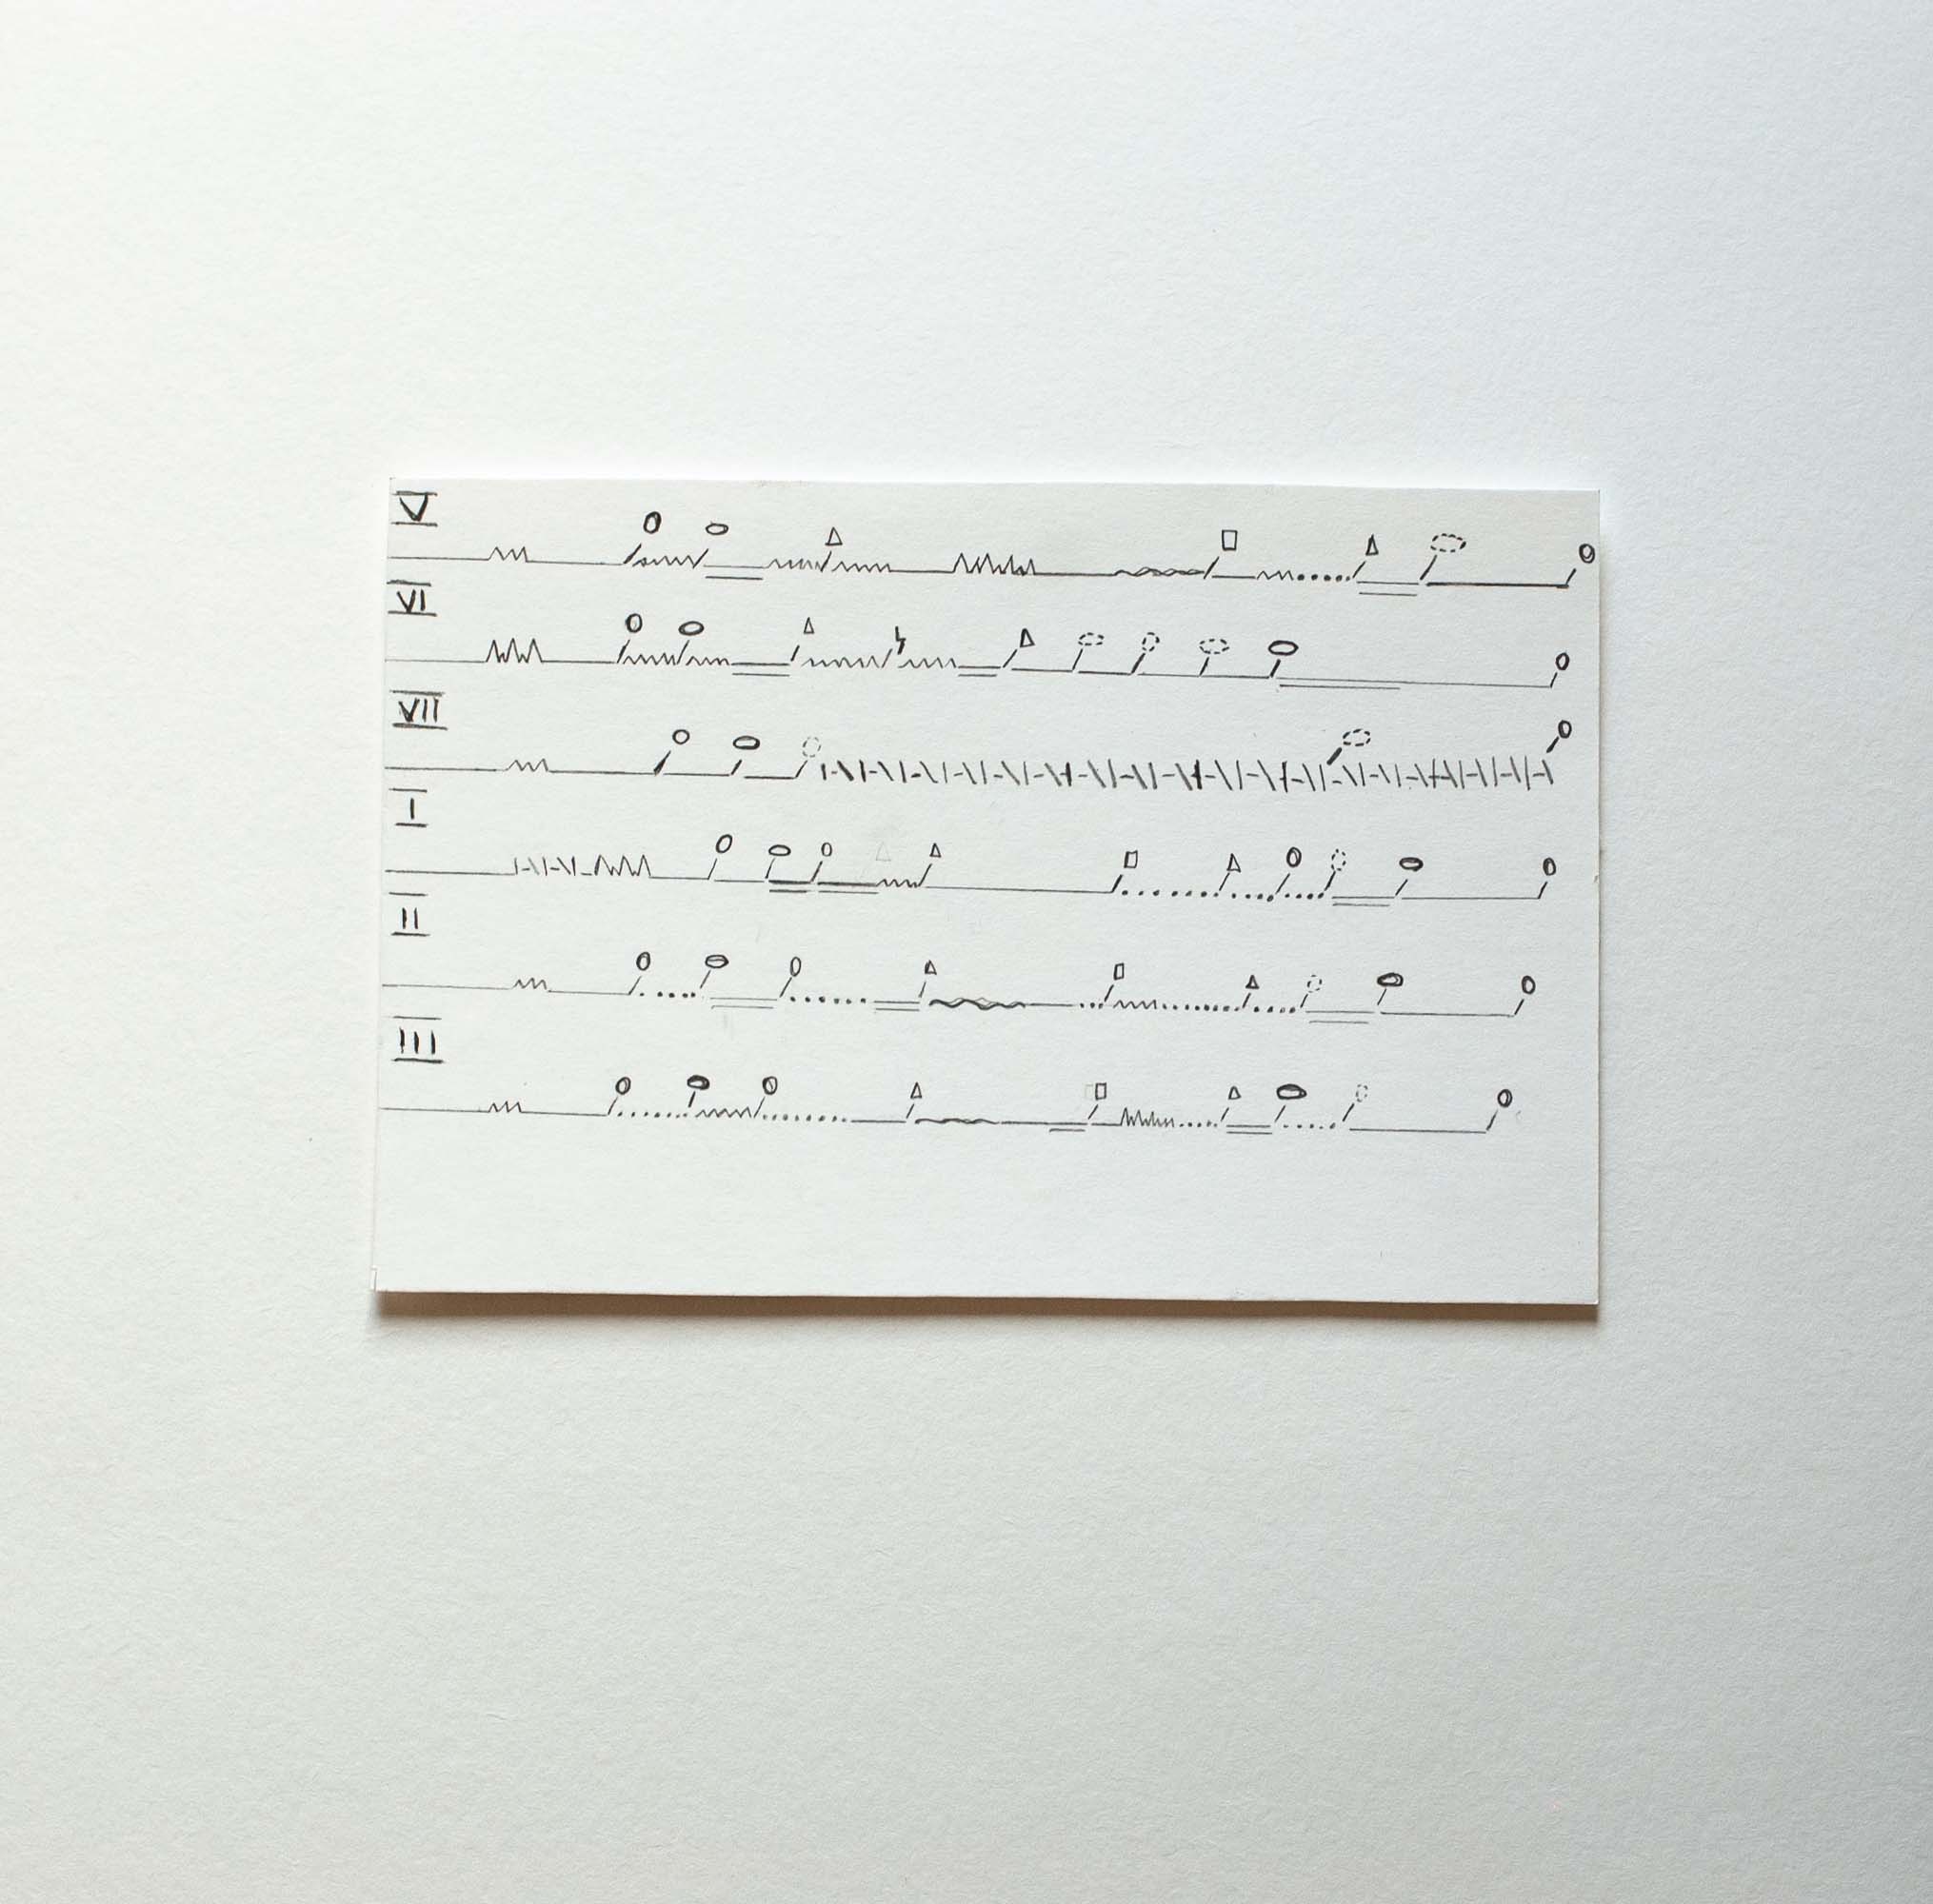 V
VI
VII
I
II
III